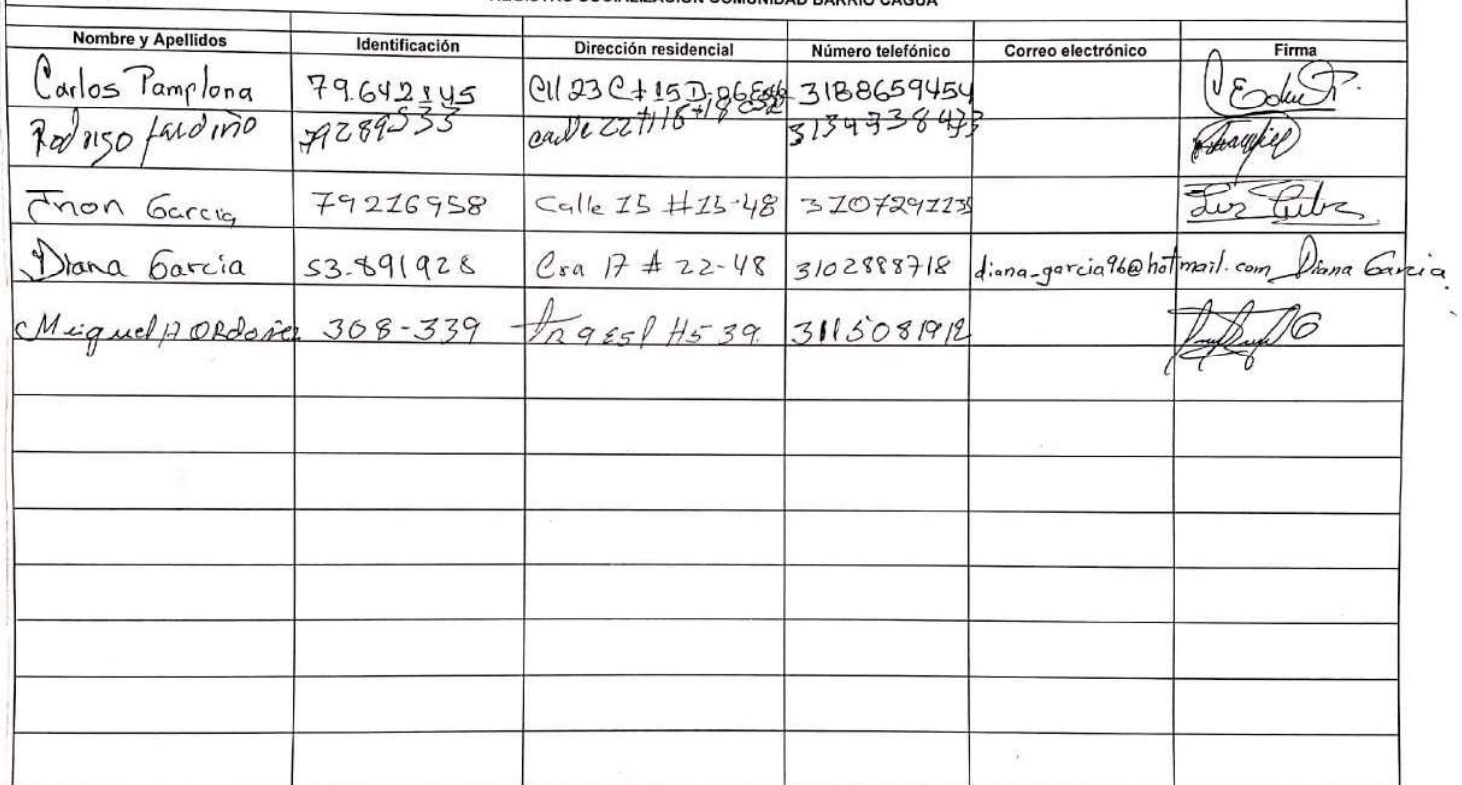 REGISTRO SOCIALIZACIÓN COMUNIDAD BARRIO CAGUA
Nombre y Apellidos Identificación Dirección residencial Número telefónico Correo electrónico Firma
Carlos Pamplona 79.642.145 Cll 23 C # 15 D 3188659454
Rodrigo 79289533 calle 22 3134738473
Jhon Garcia 79216958 Calle 15 #15-48 3107291135
Diana Garcia 53.891928 Cra 17 # 22-48 3102888718 diana_garcia96@hotmail.com Diana Garcia
Miguel A ORdoñez 308-339 3115081912